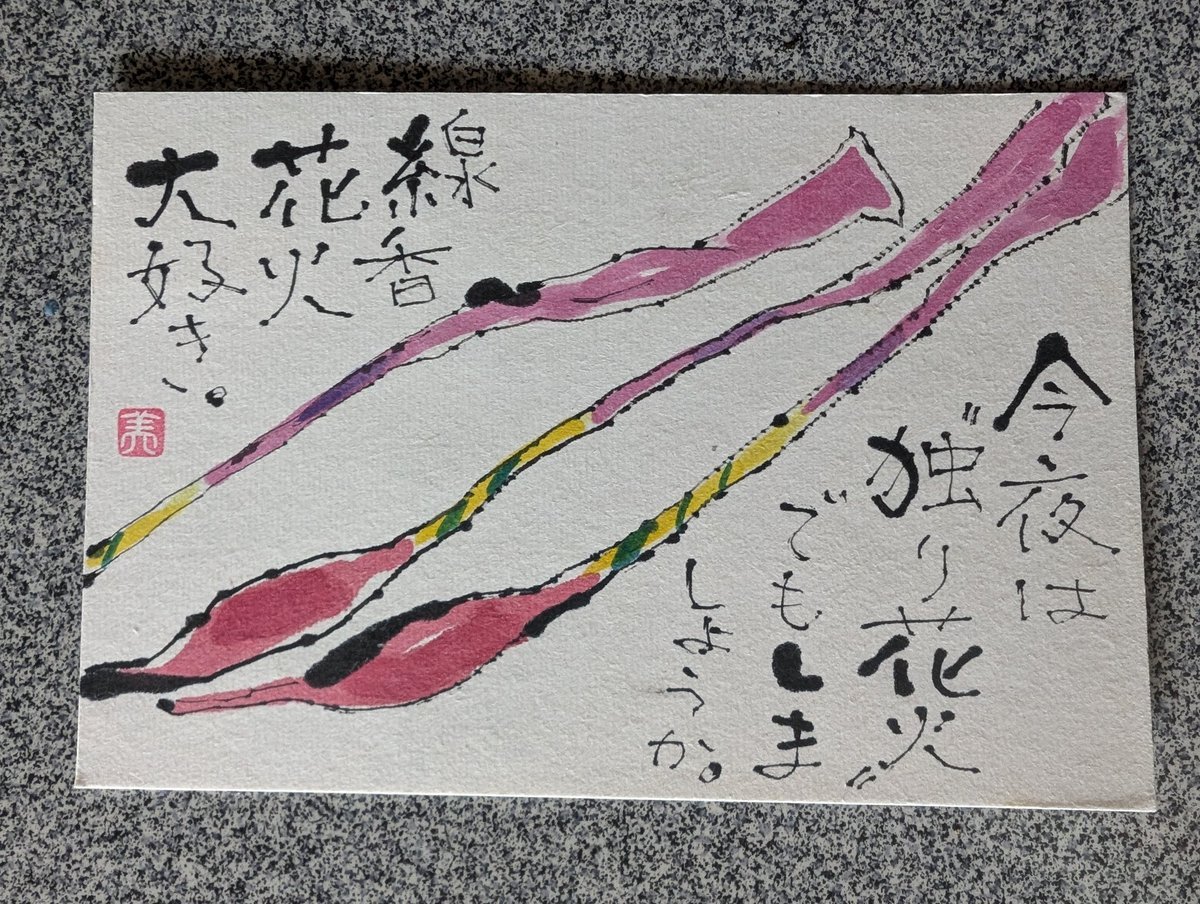 線香
花火
大好き。
美
今夜は
"独り花火"
でもしま
しょうか。